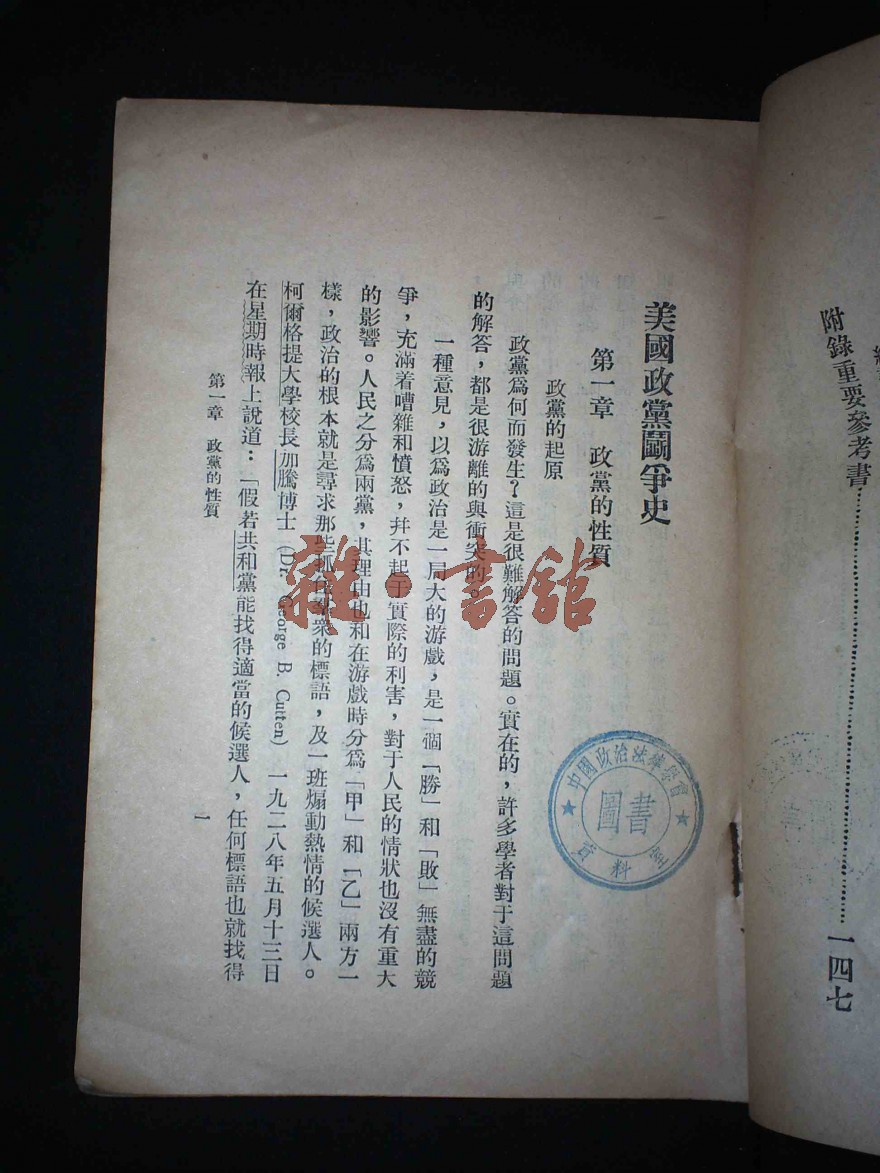 附錄重要參考書……………………一四七
美國政黨鬬爭史
第一章　政黨的性質
政黨的起原
政黨爲何而發生？這是很難解答的問題。實在的，許多學者對于這問題
的解答，都是很游離的與衝突的。
一種意見，以爲政治是一局大的游戲，是一個「勝」和「敗」無盡的競
爭，充滿着嘈雜和憤怒，幷不起于實際的利害，對于人民的情狀也沒有重大
的影響。人民之分爲兩黨，其理由也和在游戲時分爲「甲」和「乙」兩方一
樣，政治的根本就是尋求那些抓住羣衆的標語，及一班煽動熱情的候選人。
柯爾格提大學校長加騰博士 (Dr. George B. Cutten) 一九二八年五月十三日
在星期時報上說道：「假若共和黨能找得適當的候選人，任何標語也就找得
第一章　政黨的性質
一
中國政治法律學會
圖書
資料室
雜·書館